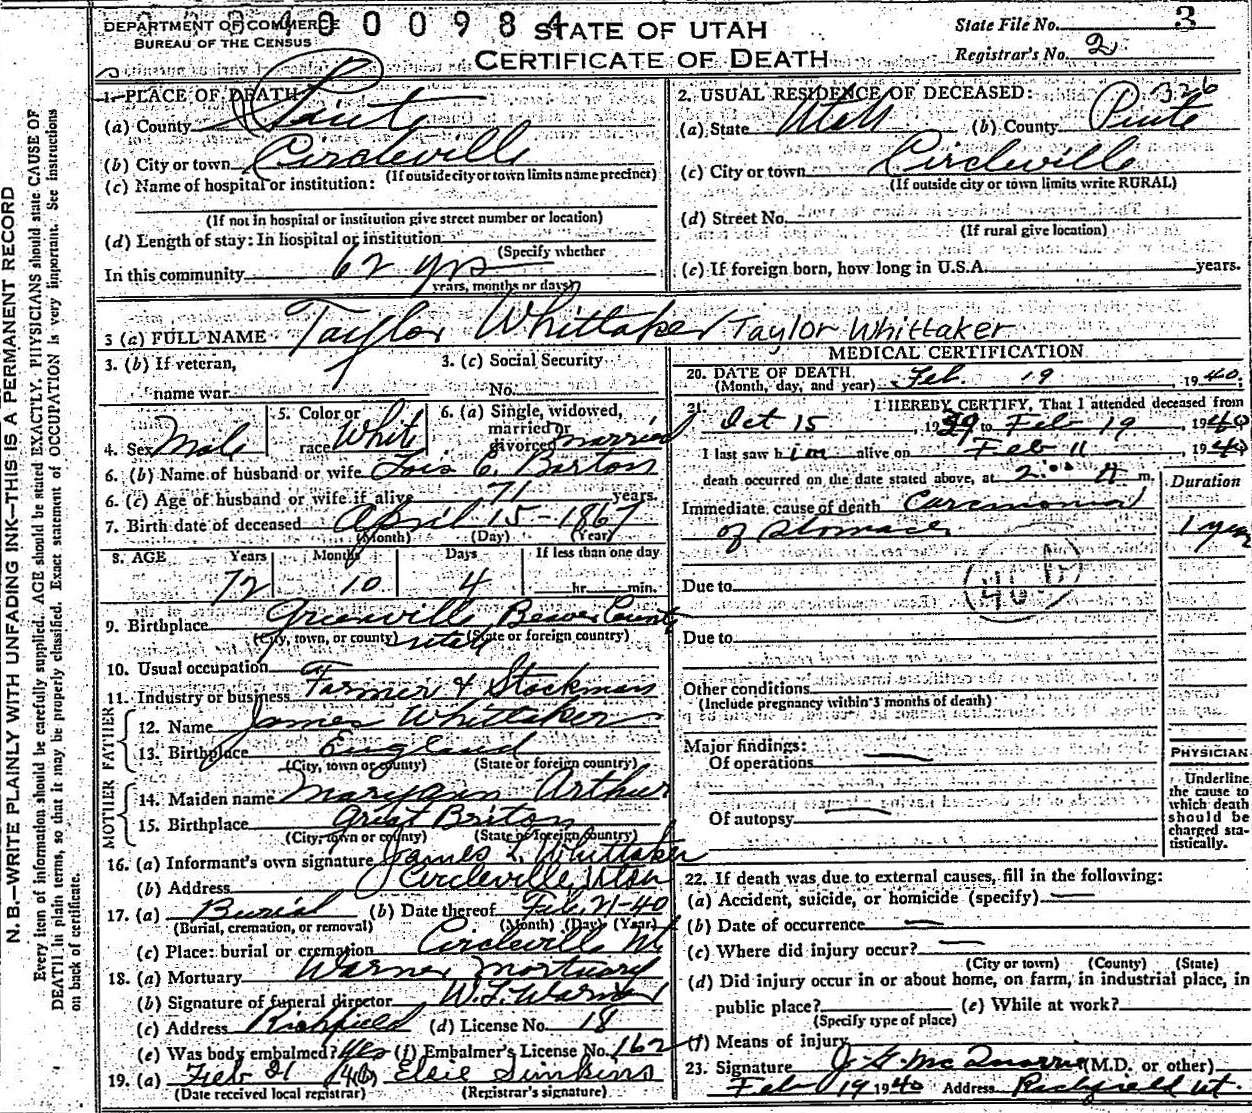 DEPARTMENT OF COMMERCE
BUREAU OF THE CENSUS
4 0 0 0 9 8 4
STATE OF UTAH
CERTIFICATE OF DEATH
State File No. 3
Registrar's No. 2
1. PLACE OF DEATH
(a) County Piute
(b) City or town Circleville
(If outside city or town limits name precinct)
(c) Name of hospital or institution:
(If not in hospital or institution give street number or location)
(d) Length of stay: In hospital or institution
(Specify whether
In this community 62 yrs
years, months or days)
2. USUAL RESIDENCE OF DECEASED: 326
(a) State Utah (b) County Piute
(c) City or town Circleville
(If outside city or town limits write RURAL)
(d) Street No.
(If rural give location)
(e) If foreign born, how long in U.S.A. years.
3 (a) FULL NAME Taylor Whittaker / Taylor Whittaker
3. (b) If veteran,
name war
3. (c) Social Security
No.
4. Sex Male
5. Color or
race White
6. (a) Single, widowed,
married or
divorced married
6. (b) Name of husband or wife Lois E. Barton
6. (c) Age of husband or wife if alive 71 years.
7. Birth date of deceased April 15 - 1867
(Month) (Day) (Year)
8. AGE Years Months Days If less than one day
72 10 4 hr. min.
9. Birthplace Greenville Beaver County
(City, town, or county) Utah (State or foreign country)
10. Usual occupation
11. Industry or business Farmer & Stockman
FATHER
12. Name James Whittaker
13. Birthplace England
(City, town or county) (State or foreign country)
MOTHER
14. Maiden name Maryann Arthur
15. Birthplace Great Briton
(City, town or county) (State or foreign country)
16. (a) Informant's own signature James L. Whittaker
(b) Address Circleville, Utah
17. (a) Burial (b) Date thereof Feb. 21-40
(Burial, cremation, or removal) (Month) (Day) (Year)
(c) Place: burial or cremation Circleville Ut
18. (a) Mortuary Warner Mortuary
(b) Signature of funeral director W. L. Warner
(c) Address Richfield (d) License No. 18
(e) Was body embalmed? Yes (f) Embalmer's License No. 162
19. (a) Feb 21 40 Elsie Simkins
(Date received local registrar) (Registrar's signature)
MEDICAL CERTIFICATION
20. DATE OF DEATH
(Month, day, and year) Feb. 19, 1940.
21. I HEREBY CERTIFY, That I attended deceased from
Oct 15, 1939 to Feb 19, 1940
I last saw him alive on Feb 11, 1940
death occurred on the date stated above, at 2:00 m.
Duration
Immediate cause of death Carcinoma
of Stomach 1 year
Due to
46 b
Due to
Other conditions
(Include pregnancy within 3 months of death)
Major findings:
Of operations —
Of autopsy —
PHYSICIAN
Underline
the cause to
which death
should be
charged sta-
tistically.
22. If death was due to external causes, fill in the following:
(a) Accident, suicide, or homicide (specify) —
(b) Date of occurrence —
(c) Where did injury occur? —
(City or town) (County) (State)
(d) Did injury occur in or about home, on farm, in industrial place, in
public place? (e) While at work?
(Specify type of place)
(f) Means of injury
23. Signature J. G. McQuarrie (M.D. or other)
Feb 19 1940 Address Richfield Ut.
N. B.—WRITE PLAINLY WITH UNFADING INK—THIS IS A PERMANENT RECORD
Every item of information should be carefully supplied. AGE should be stated EXACTLY. PHYSICIANS should state CAUSE OF
DEATH in plain terms, so that it may be properly classified. Exact statement of OCCUPATION is very important. See instructions
on back of certificate.